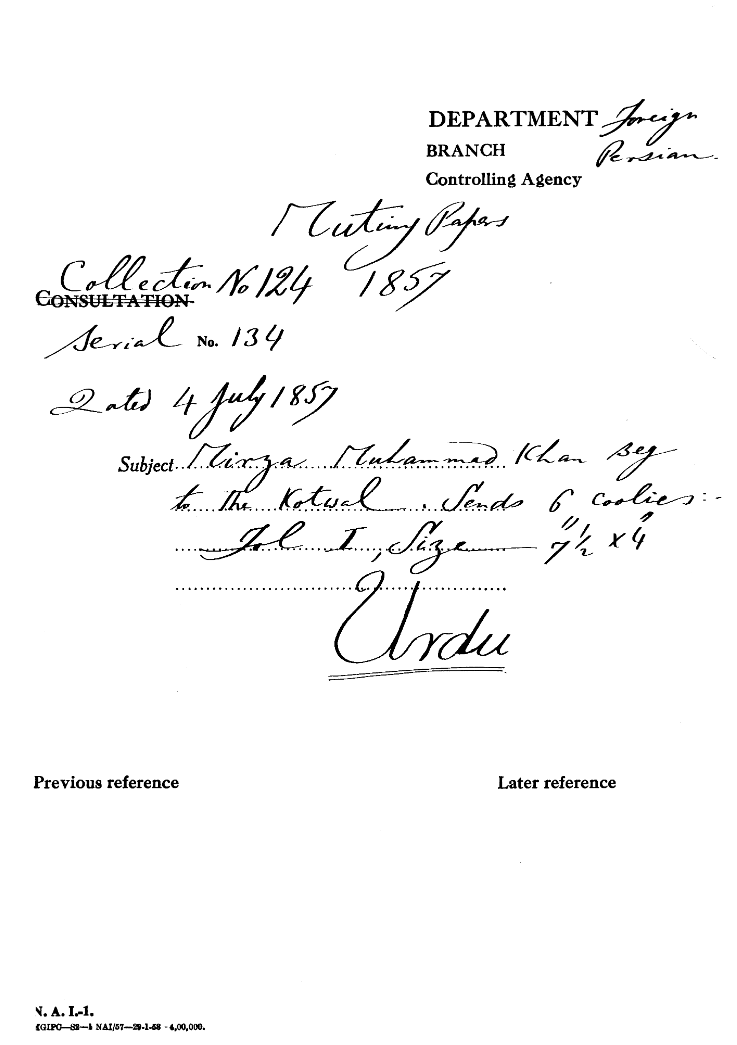 DEPARTMENT Foreign
BRANCH Persian.
Controlling Agency
Mutiny Papers
Collection No 124 1857
CONSULTATION
Serial No. 134
Dated 4 July 1857
Subject Mirza Muhammad Khan Beg
to the Kotwal. Sends 6 coolies:-
Fol I, Size 7½" x 4"
Urdu
Previous reference
Later reference
N. A. I.-1.
GIPC—S2—1 NAI/57—29-1-58 - 4,00,000.